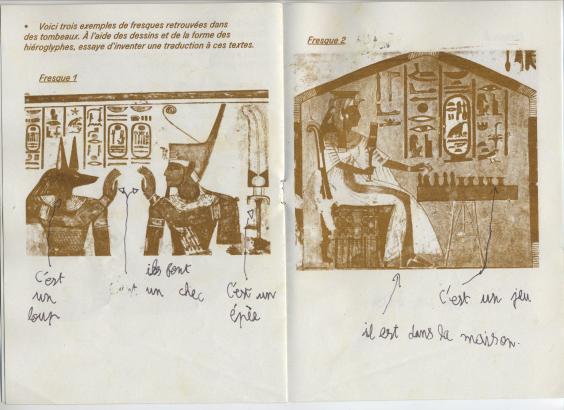 • Voici trois exemples de fresques retrouvées dans
des tombeaux. À l'aide des dessins et de la forme des
hiéroglyphes, essaye d'inventer une traduction à ces textes.
Fresque 1
C'est
un
loup
ils font
un chec
C'est un
épée
Fresque 2
C'est un jeu
il est dans la maison.